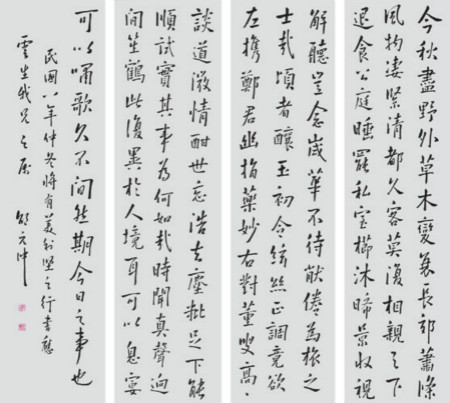 今秋盡野外草木變衰長郊蕭條
風物凄緊清都久客莫復相親之下
退食公庭睡罷私室櫛沐晞景收視
解聽豈念歲華不待猒倦為旅之
士哉頃者釀玉初令絃絲正調竟欲
左攜鄭君幽指藥妙右對董叟高
談道澂情酣世忘浩去塵秕足下能
順試實其事為何如哉時聞真聲迥
間笙鶴此復異於人境耳可以息宴
可以嘯歌久不間然期今日之事也
民國八年仲冬將有美利堅之行書應
雲生我兄之屬 邵元冲